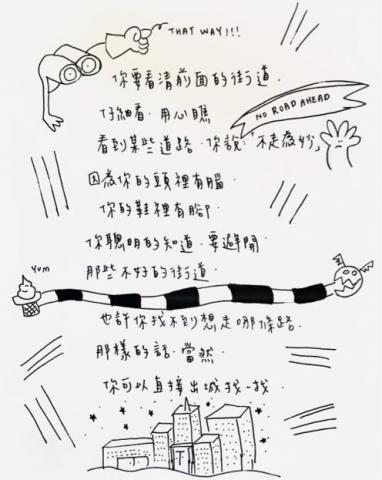 THAT WAY!!!
你要看清前面的街道.
仔細看.用心瞧
NO ROAD AHEAD
看到某些道路.你說:「不走為妙」
因為你的頭裡有腦.
你的鞋裡有腳.
你聰明的知道.要避開
那些不好的街道.
Yum
也許你找不到想走哪條路.
那樣的話.當然.
你可以直接出城找一找.